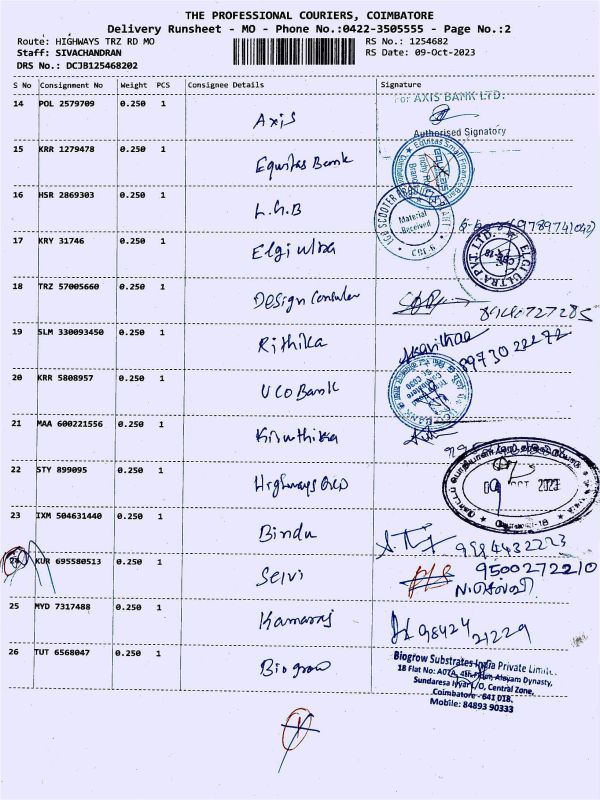 THE PROFESSIONAL COURIERS, COIMBATORE
Delivery Runsheet - MO - Phone No.:0422-3505555 - Page No.:2
Route: HIGHWAYS TRZ RD MO RS No.: 1254682
Staff: SIVACHANDRAN RS Date: 09-Oct-2023
DRS No.: DCJB125468202
S No Consignment No Weight PCS Consignee Details Signature
14 POL 2579709 0.250 1 Axis For AXIS BANK LTD.
Authorised Signatory
15 KRR 1279478 0.250 1 Equitas Bank Equitas Small Finance Bank
16 HSR 2869303 0.250 1 L.G.B Material Received
17 KRY 31746 0.250 1 Elgi ultra ELGI ULTRA PVT. LTD.
18 TRZ 57005660 0.250 1 Design Consulen
19 SLM 330093450 0.250 1 Rithika
20 KRR 5808957 0.250 1 UCO Bank
21 MAA 600221556 0.250 1 Kiruthika
22 STY 899095 0.250 1 Highways OCT 2023
23 IXM 504631440 0.250 1 Bindu 9984432223
24 KUR 695580513 0.250 1 Selvi 9500272210
N.செல்வி
25 MYD 7317488 0.250 1 Kamaraj 98424 21229
26 TUT 6568047 0.250 1 Biogrow Biogrow Substrates India Private Limite
18 Flat No: A07A, 4th Floor, Alayam Dynasty,
Sundaresa Iyyar L/O, Central Zone,
Coimbatore - 641 018.
Mobile: 84893 90333